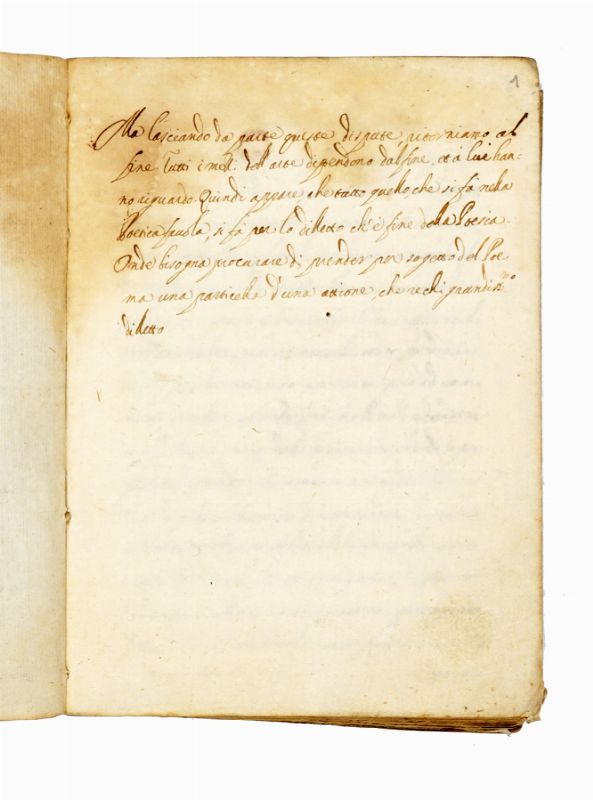 1
Ma lasciando da parte queste dispute ritorniamo al
fine. Tutti i mezi dell'arte dipendono dal fine, et à lui han=
no riguardo. Quindi appare, che tutto quello, che si fà nella
Poetica fauola, si fà per lo diletto ch'è fine della Poesia.
Onde bisogna procurare di prender per sogetto del Poe,
ma una particella d'una attione, che rechi grandiss.mo
diletto